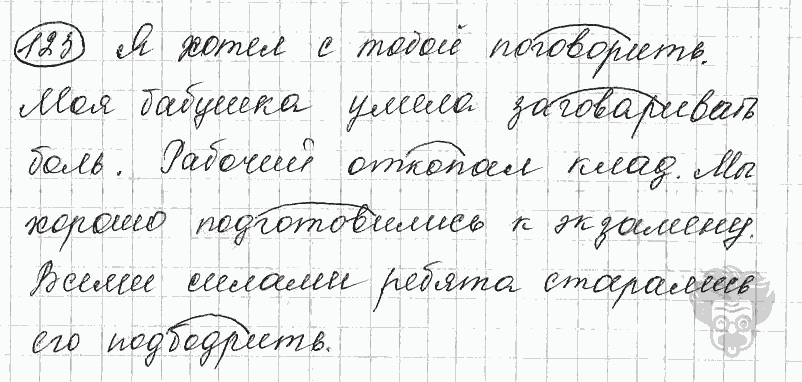 123 Я хотел с тобой поговорить.
Моя бабушка умела заговаривать
боль. Рабочий откопал клад. Мы
хорошо подготовились к экзамену.
Всеми силами ребята старались
его подбодрить.